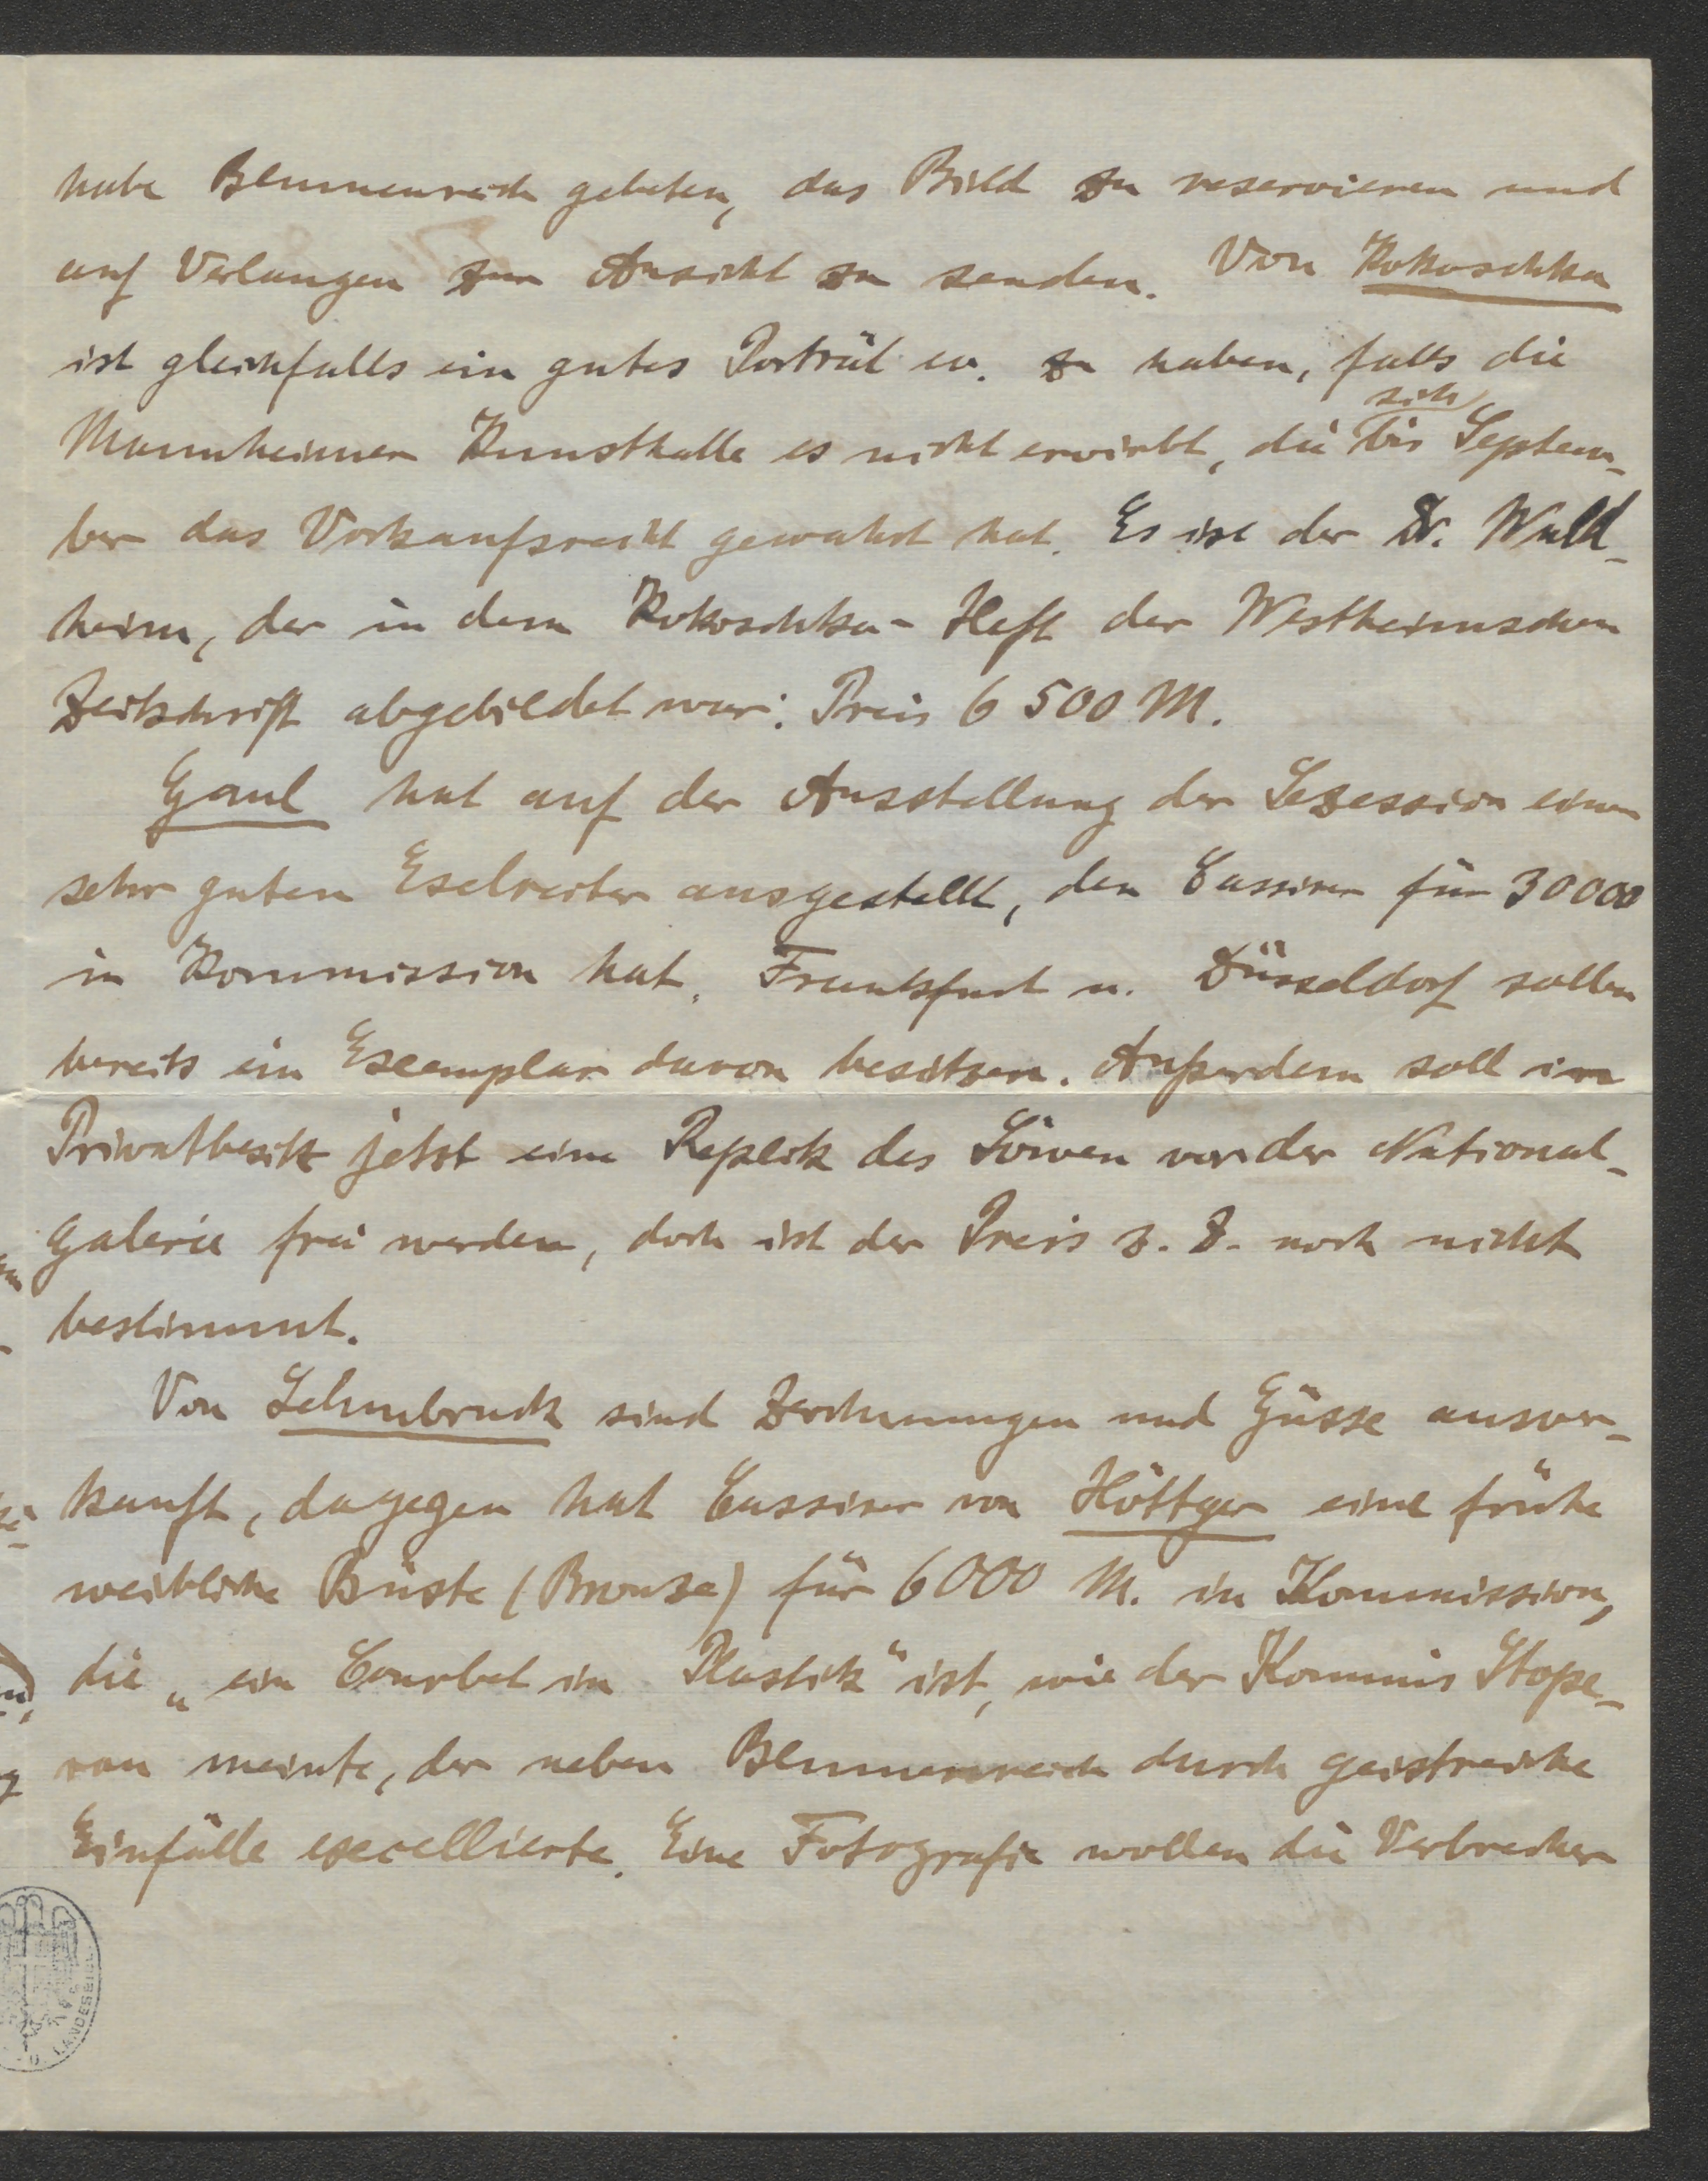 habe Blumenreich gebeten, das Bild zu reservieren und
auf Verlangen zur Ansicht zu senden. Von Kokoschka
ist gleichfalls ein gutes Porträt ev. zu haben, falls die
Mannheimer Kunsthalle es nicht erwirbt, die sich bis Septem-
ber das Vorkaufsrecht gewahrt hat. Es ist der Dr. Wald-
heim, der in dem Kokoschka-Heft der Westheimschen
Zeitschrift abgebildet war. Preis 6 500 M.
Gaul hat auf der Ausstellung der Sezession einen
sehr guten Eselreiter ausgestellt, den Cassirer für 30000
in Kommission hat. Frankfurt u. Düsseldorf sollen
bereits ein Exemplar davon besitzen. Außerdem soll im
Privatbesitz jetzt eine Replik des Löwen vor der National-
galerie frei werden, doch ist der Preis z. Z. noch nicht
bestimmt.
Von Lehmbruck sind Zeichnungen und Güsse ausver-
kauft, dagegen hat Cassirer von Höttger eine frühe
weibliche Büste (Bronze) für 6000 M. in Kommission,
die „ein Courbet in Plastik" ist, wie der Kommis Stope-
ran meinte, der neben Blumenreich durch geistreiche
Einfälle excellierte. Eine Fotografie wollen die Verbrecher
LANDESBIBL